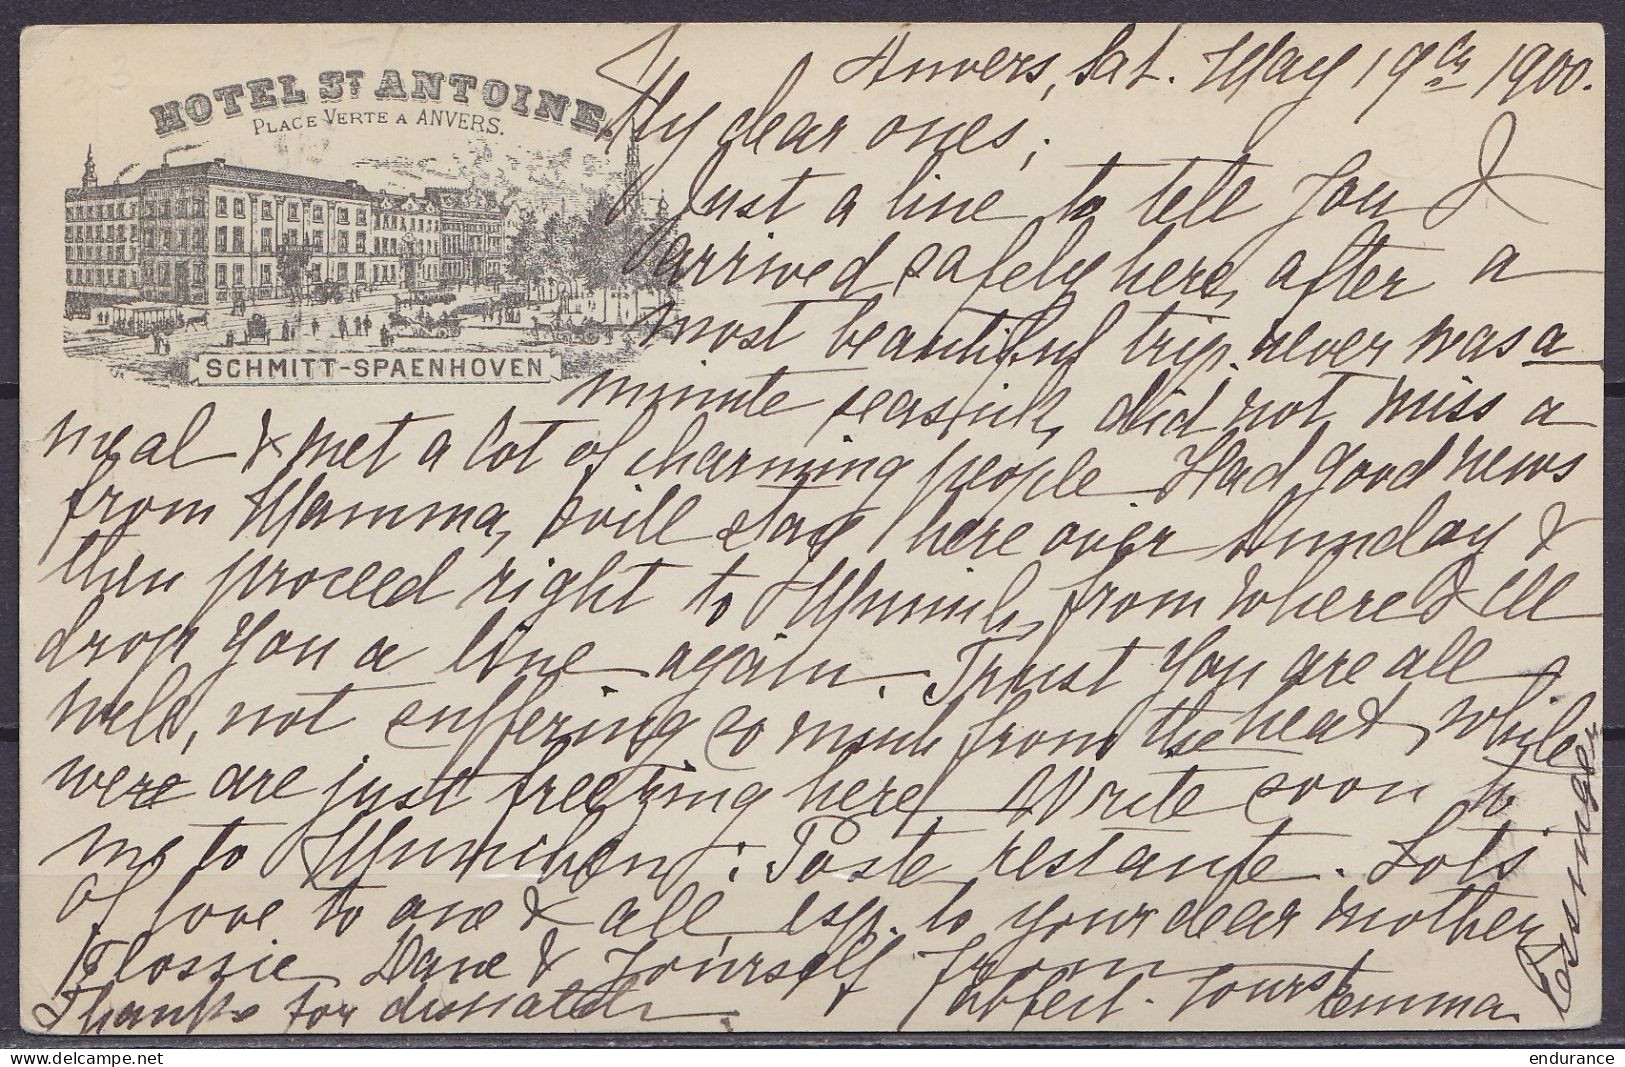 Anvers, Sat. May 19th 1900.
HOTEL ST ANTOINE.
PLACE VERTE A ANVERS.
SCHMITT-SPAENHOVEN
My dear ones;
Just a line to tell you I
arrived safely here, after a
most beautiful trip. never was a
minute seasick, did not miss a
meal & met a lot of charming people. Had good news
from Mamma, will stay here over Sunday &
then proceed right to Munich, from where I'll
drop you a line again. Trust you are all
well, not suffering so much from the heat, while
we are just freezing here. Write soon to
me to München: Poste restante. Lots
of love to one & all, esp. to your dear mother,
Flossie, Dave & Yourself from
Yours Emma
Thanks for dispatch.
endurance